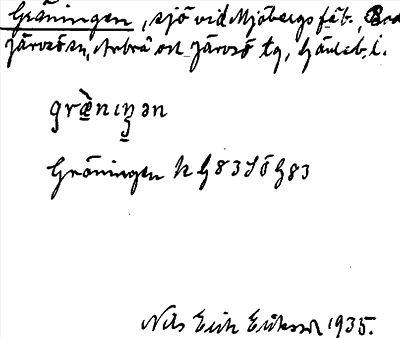 Gröningen, sjö vid Mjöbergs fäb.,
Järvsö sn, Arbrå och Järvsö tg, Gävleb. l.
græ̀niŋən
Gröningen K G83 SÖ G83
Nils Erik Eriksson 1935.